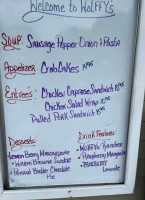 Welcome to WOLFFY's
Soup: Sausage Pepper Onion & Pasta
Appetizer: Crab Cakes
Entree's: Chicken Caprese Sandwich
Chicken Salad Wrap
Pulled Pork Sandwich
Desserts:
Lemon Berry Mascarpone
Warm Brownie Sundae
Peanut Butter Chocolate
Pie
Drink Features
WOLFFY's
Raspberry
Blueberry